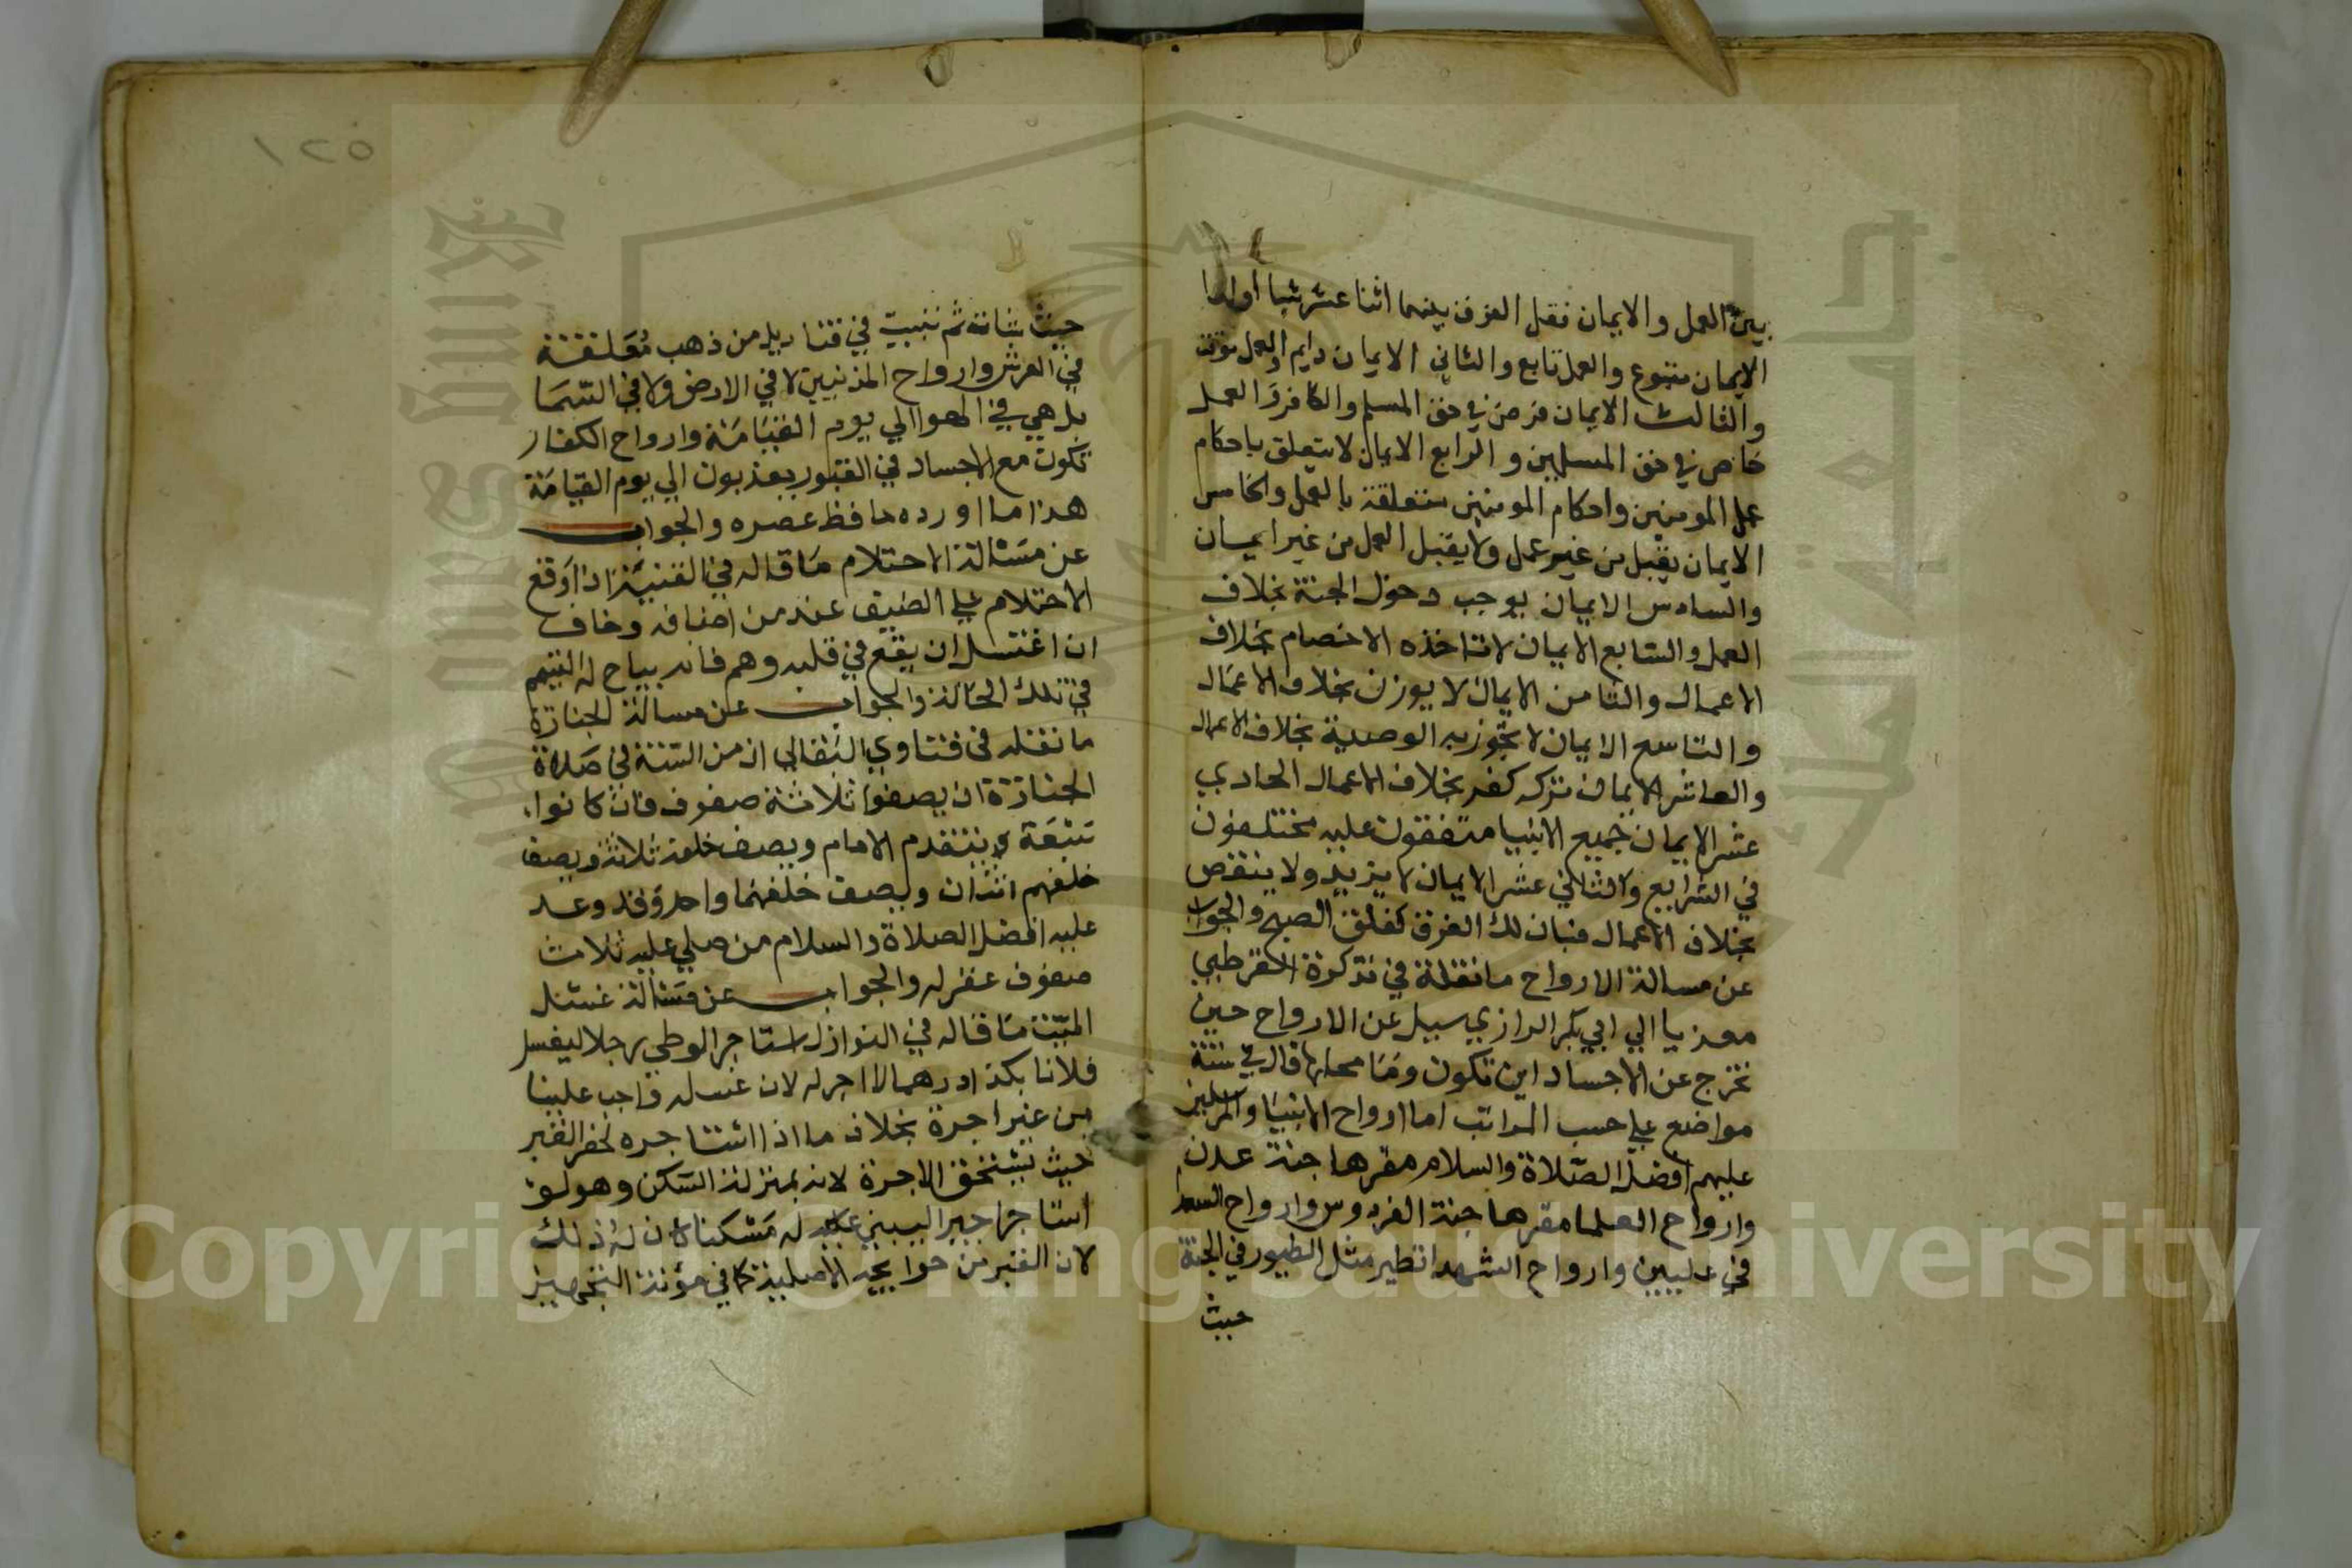 بين العمل والايمان فقل الفرق بينهما اثنا عشر شيا اولها
الايمان متبوع والعمل تابع والثاني الايمان دايم والعمل موقت
والثالث الايمان فرض في حق المسلم والكافر والعمل
خاص في حق المسلمين والرابع الايمان لا يتعلق باحكام
عمل المومنين واحكام المومنين متعلقة بالعمل والخامس
الايمان يقبل من غير عمل ولا يقبل العمل من غير ايمان
والسادس الايمان يوجب دخول الجنة بخلاف
العمل والسابع الايمان لا تاخذه الاخصام بخلاف
الاعمال والثامن الايمان لا يوزن بخلاف الاعمال
والتاسع الايمان لا تجوز به الوصية بخلاف الاعمال
والعاشر الايمان تركه كفر بخلاف الاعمال الحادي
عشر الايمان جميع الانبيا متفقون عليه مختلفون
في الشرايع والثاني عشر الايمان لا يزيد ولا ينقص
بخلاف الاعمال فبان لك الفرق كفلق الصبح والجواب
عن مسالة الارواح ما نقله في تذكرة القرطبي
معزيا الي ابي بكر الرازي سيل عن الارواح حين
تخرج عن الاجساد اين تكون وما محلها قال في ستة
مواضع علي حسب المراتب اما ارواح الانبيا والمرسلين
عليهم افضل الصلاة والسلام مقرها جنة عدن
وارواح العلما مقرها جنة الفردوس وارواح السعدا
في عليين وارواح الشهدا تطير مثل الطيور في الجنة
حيث
١٢٥
حيث شات ثم تبيت في قناديل من ذهب معلقة
في العرش وارواح المذنبين لا في الارض ولا في السما
بل هي في الهوا الي يوم القيامة وارواح الكفار
تكون مع الاجساد في القبور يعذبون الي يوم القيامة
هذا ما اورده حافظ عصره والجواب
عن مسالة الاحتلام ما قاله في القنية اذا اوقع
الاحتلام علي الضيف عند من اضافه وخاف
ان اغتسل ان يقع في قلبه وهم فانه يباح له التيمم
في تلك الحالة والجواب عن مسالة الجنازة
ما نقله في فتاوي البقالي ان من السنة في صلاة
الجنازة ان يصفوا ثلاثة صفوف فان كانوا
سبعة يتقدم الامام ويصف خلفه ثلاثة ويصف
خلفهم اثنان ويصف خلفهما واحد وقد وعد
عليه افضل الصلاة والسلام من صلي عليه ثلاث
صفوف غفر له والجواب عن مسالة غسل
الميت ما قاله في النوازل استاجر الوطي رجلا ليغسل
فلانا بكذا درهما لا اجر له لان غسله واجب علينا
من غير اجرة بخلاف ما اذا استاجره لحفر القبر
حيث يستحق الاجرة لانه بمنزلة السكن وهو لو
استاجر اجيرا ليبني عليه له مسكنا كان له ذلك
لان القبر من حوايجه الاصلية كما في مؤنة التجهيز
Copyright © King Saud University